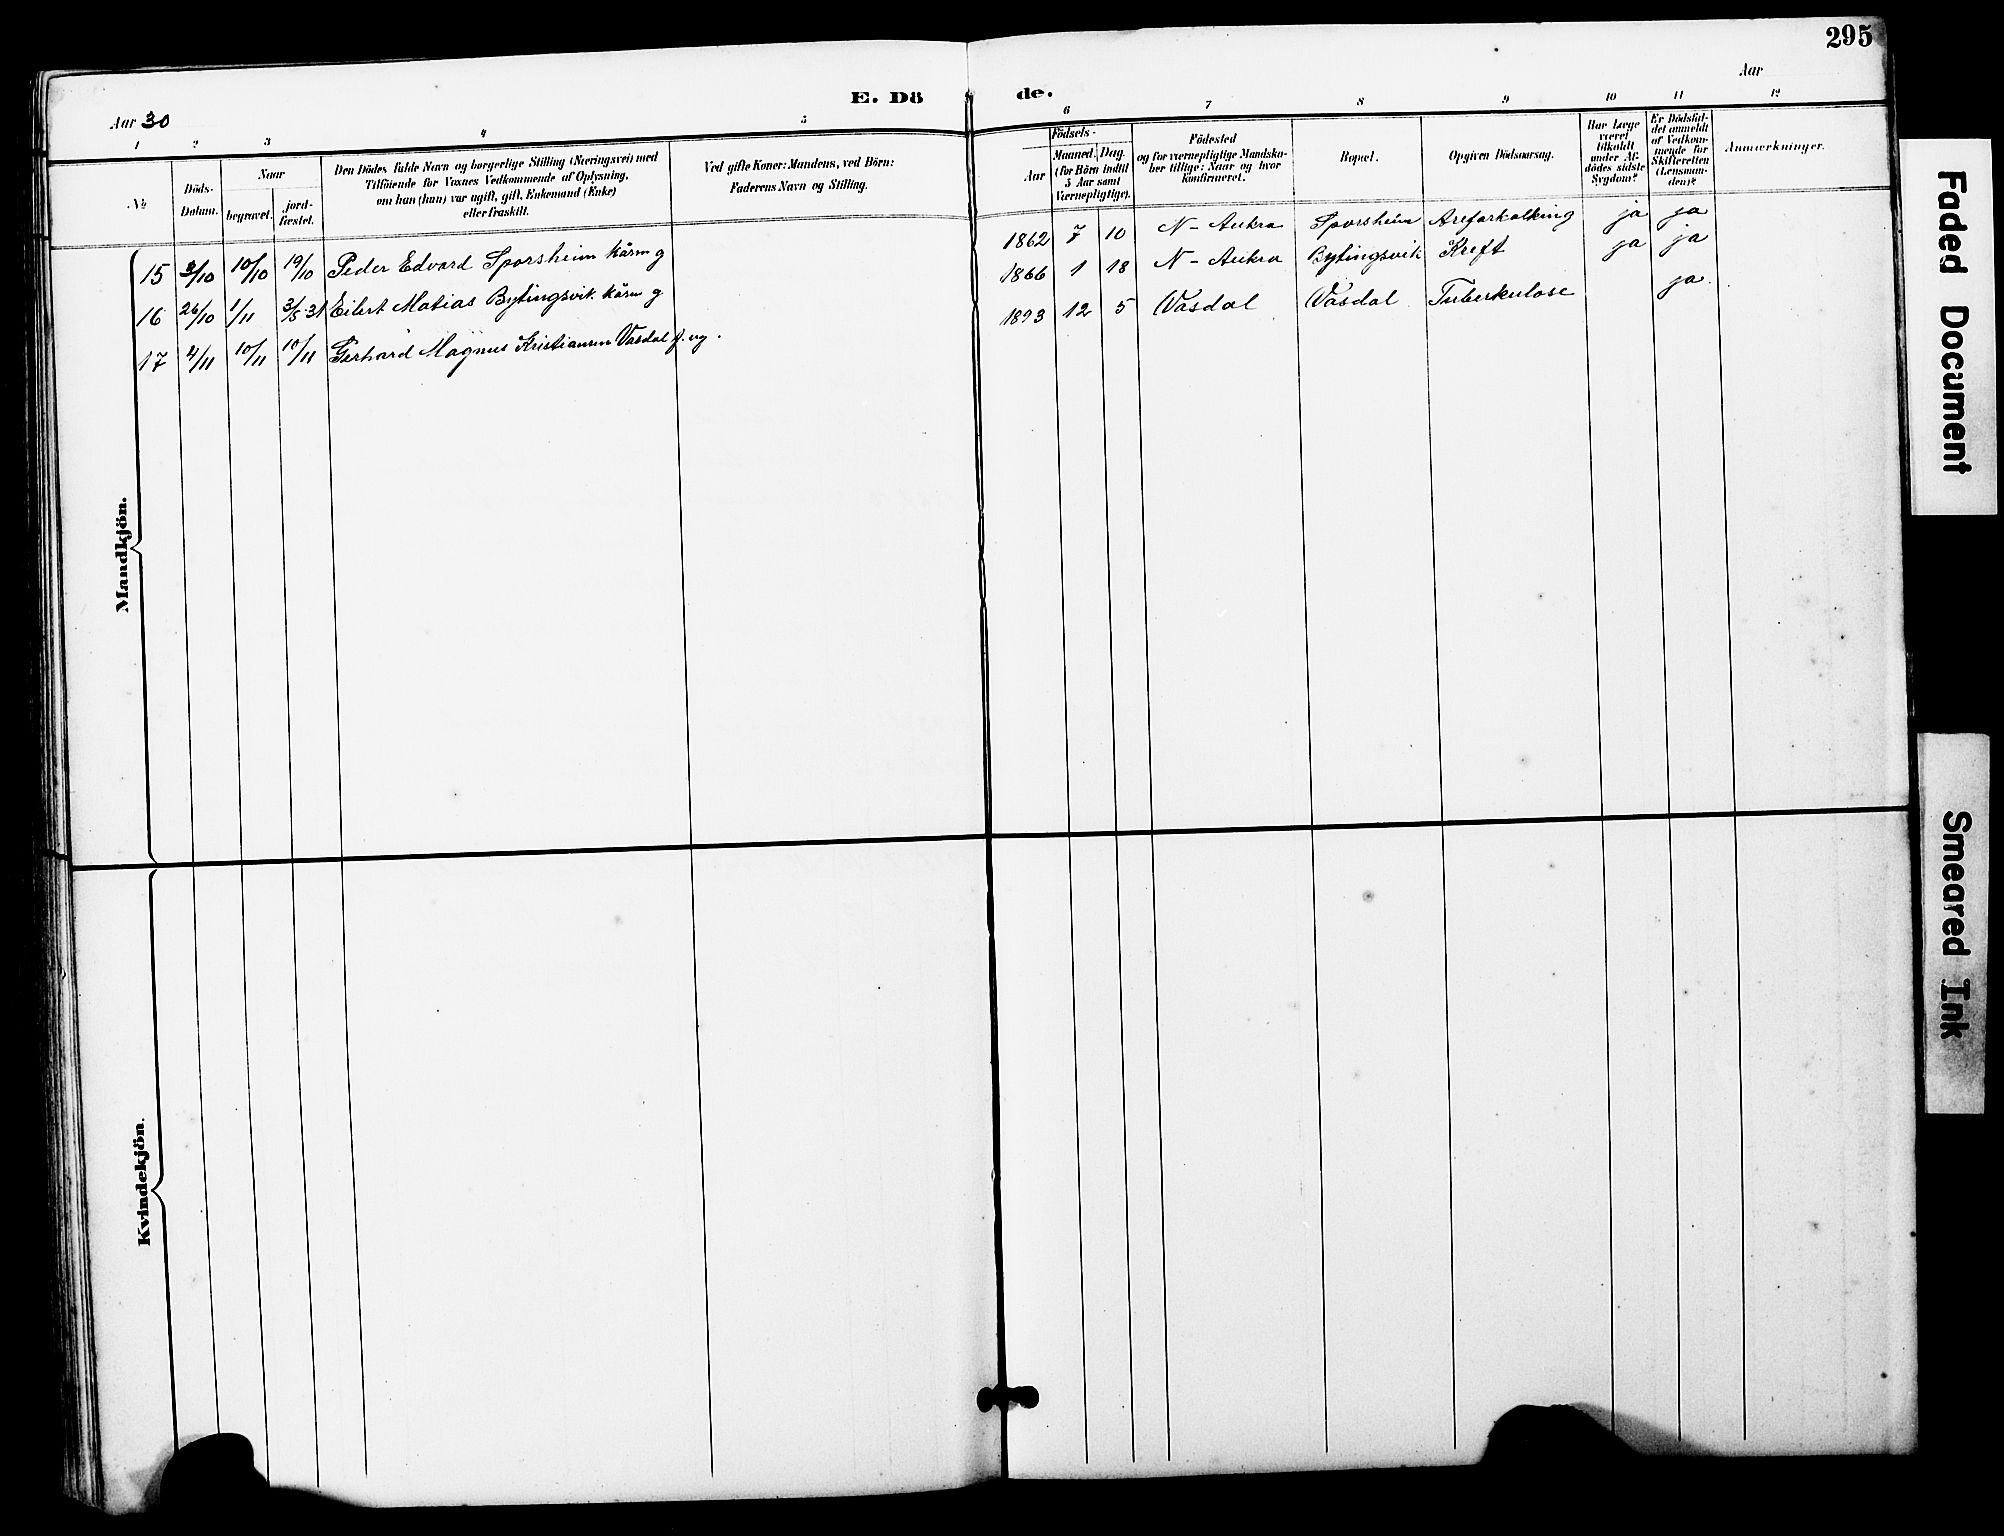 295
Aar 30
E. Döde.
Aar
1 2 3 4 5 6 7 8 9 10 11 12
№
Döds-
Datum.
Naar
begravet.
jord-
fæstet.
Den Dödes fulde Navn og borgerlige Stilling (Næringsvei) med
Tilföiende for Voxnes Vedkommende af Oplysning,
om han (hun) var ugift, gift, Enkemand (Enke)
eller fraskilt.
Ved gifte Koner: Mandens, ved Börn:
Faderens Navn og Stilling.
Födsels-
Aar
Maaned. Dag.
(for Börn indtil
5 Aar samt
Værnepligtige).
Födested
og for værnepligtige Mandska-
ber tillige: Naar og hvor
konfirmeret.
Bopæl.
Opgiven Dödsaarsag.
Har Læge
været
tilkaldt
under Af-
dödes sidste
Sygdom?
Er Dödsfal-
det anmeldt
af Vedkom-
mende for
Skifteretten
(Lensman-
den)?
Anmærkninger.
Mandkjön.
15 3/10 10/10 19/10 Peder Edvard Sporsheim kårm g 1862 7 10 N-Aukra Sporsheim Areforkalking ja ja
16 26/10 1/11 3/5-31 Eilert Matias Bytingsvik kårm g 1866 1 18 N-Aukra Bytingsvik Kreft ja ja
17 4/11 10/11 10/11 Gerhard Magnus Kristiansen Vasdal f. ug. 1893 12 5 Vasdal Vasdal Tuberkulose ja
Kvindekjön.
Faded Document
Smeared Ink